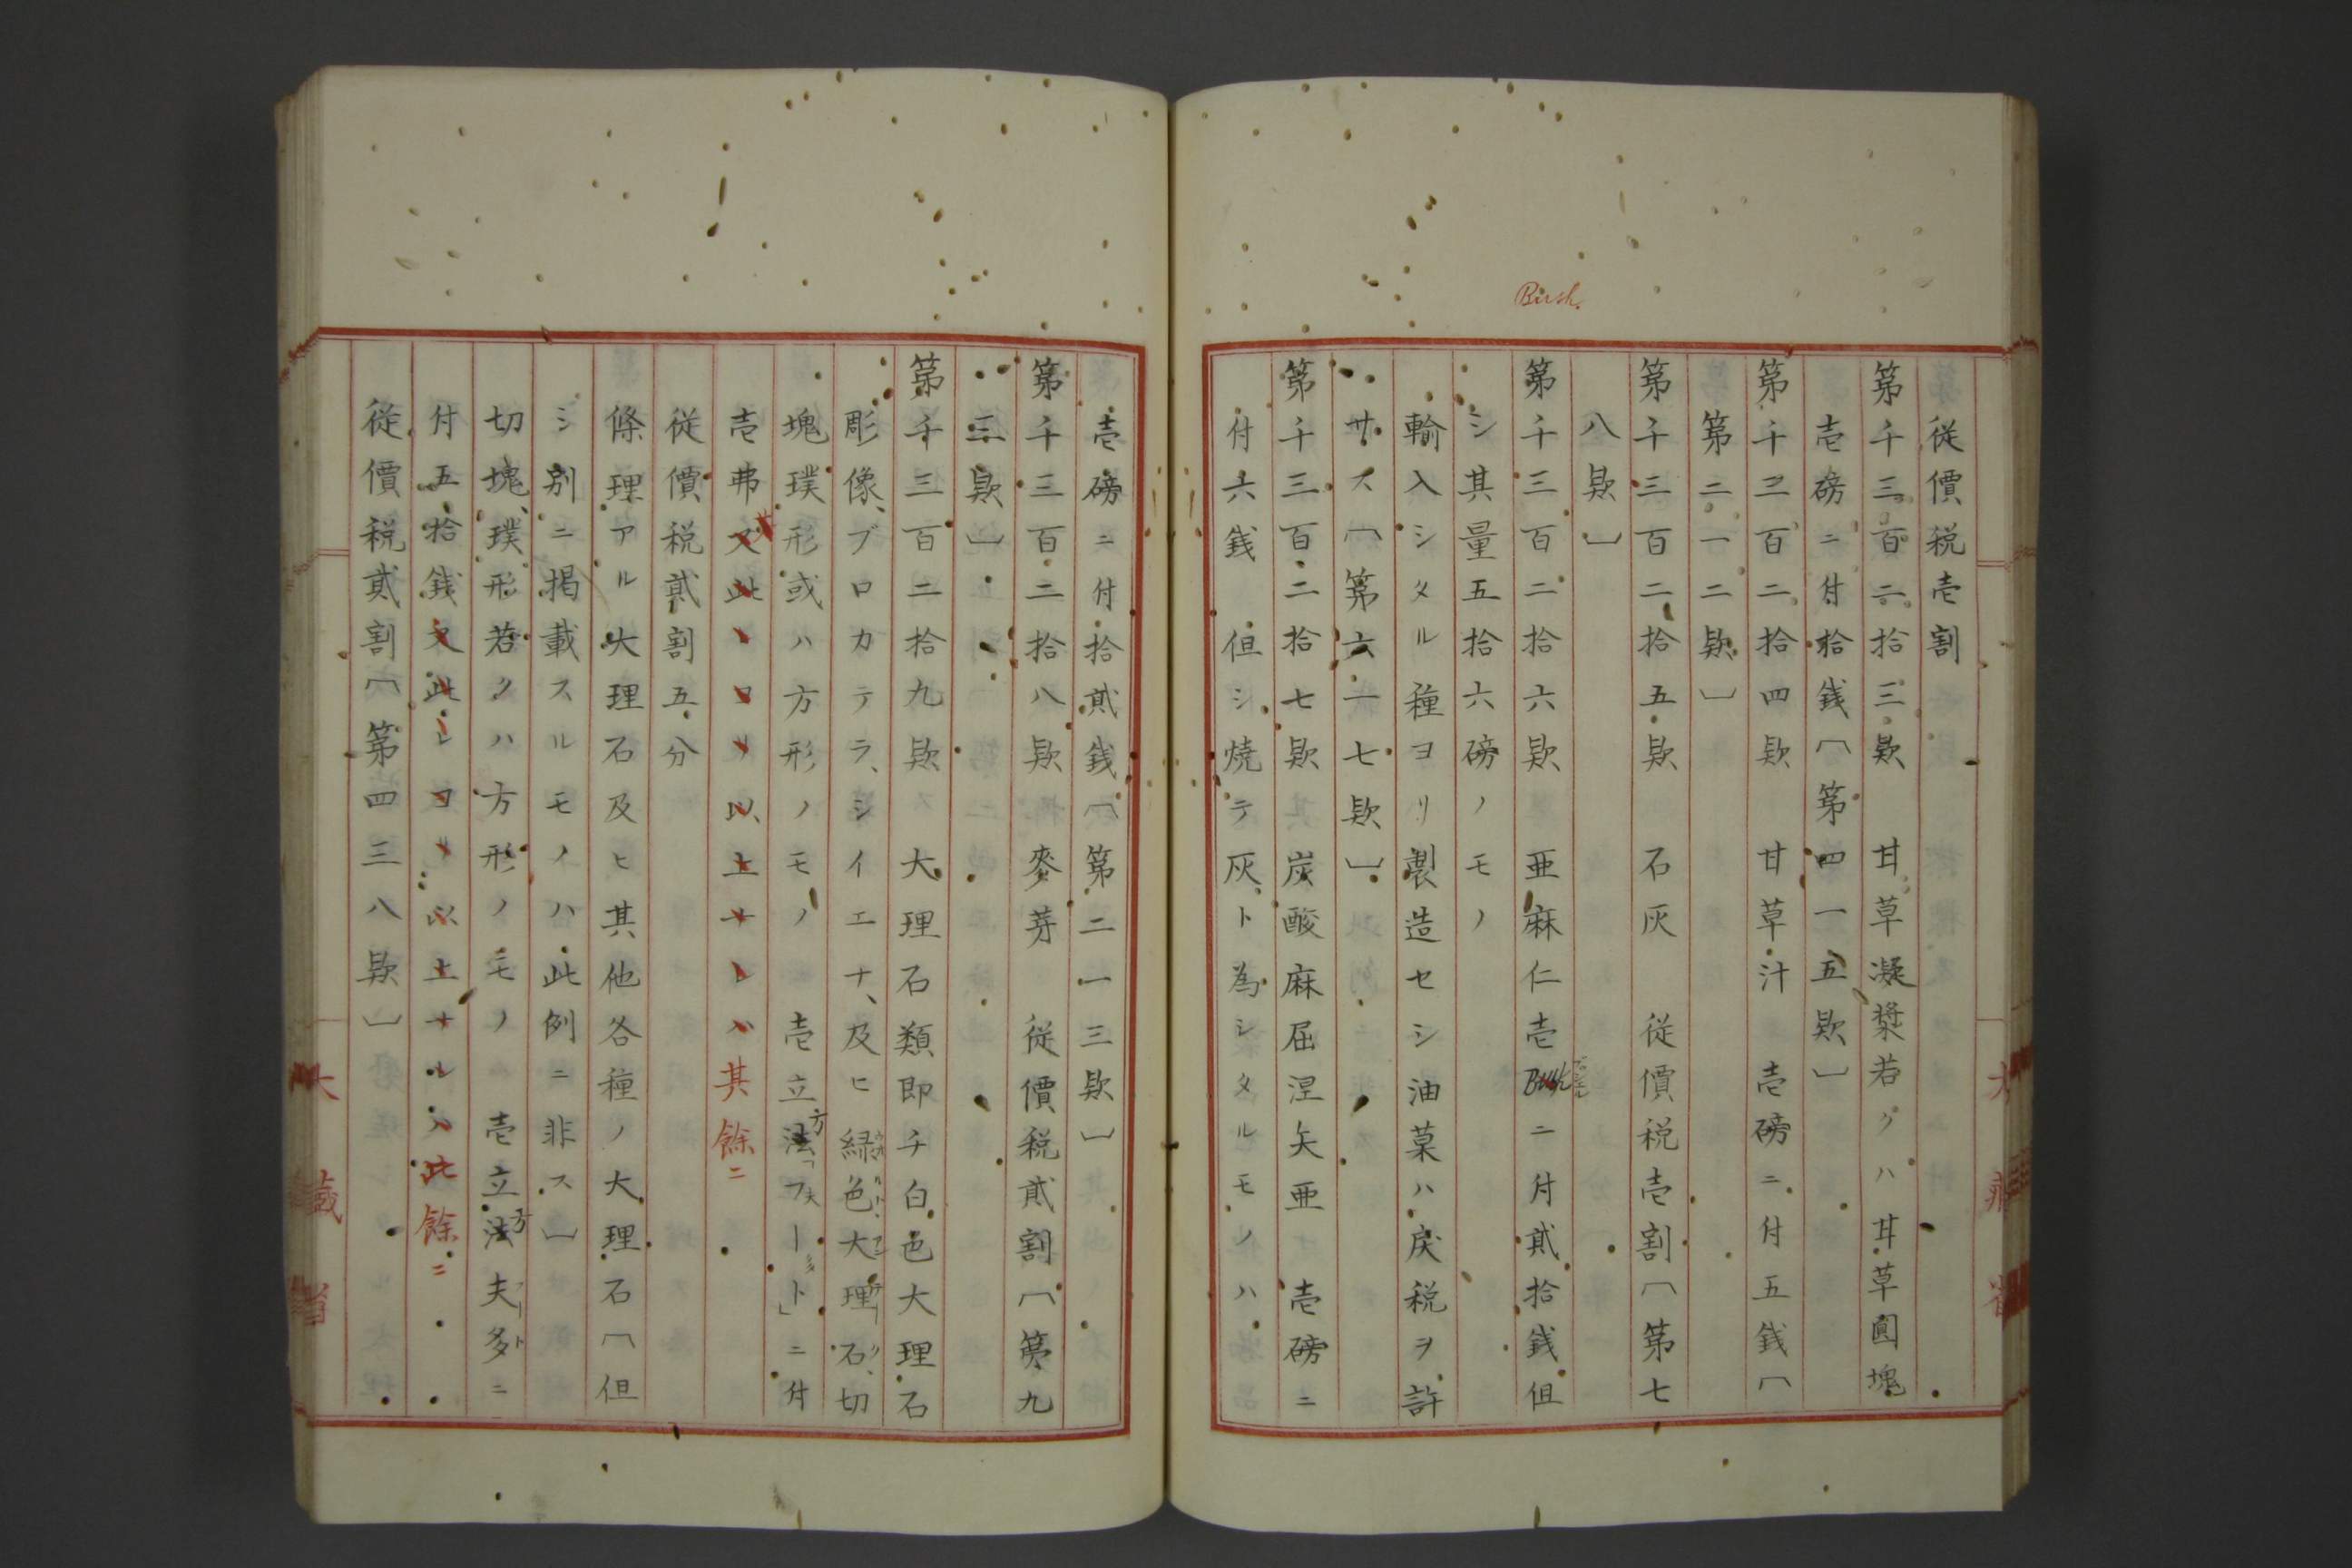 Bush.
従價税壱割
第千三百二拾三欵　甘草凝漿若クハ甘草圓塊
壱磅ニ付拾銭〔第四一五欵〕
第千三百二拾四欵　甘草汁　壱磅ニ付五銭〔
第二一二欵〕
第千三百二拾五欵　石灰　従價税壱割〔第七
八欵〕
第千三百二拾六欵　亜麻仁壱Bushニ付貳拾銭但
シ其量五拾六磅ノモノ
輸入シタル種ヨリ製造セシ油菓ハ戻税ヲ許
サス〔第六一七欵〕
第千三百二拾七欵　炭酸麻屈涅矢亜　壱磅ニ
付六銭　但シ焼テ灰ト為シタルモノハ
大藏省
壱磅ニ付拾貳銭〔第二一三欵〕
第千三百二拾八欵　麥芽　従價税貳割〔第九
三欵〕
第千三百二拾九欵　大理石類即チ白色大理石
彫像、ブロカテラ、シイエナ、及ヒ緑色大理石、切
塊璞形或ハ方形ノモノ　壱立法方「フート」ニ付
壱弗又此ヽヨリ以上ナレハ其餘ニ
従價税貳割五分
條理アル大理石及ヒ其他各種ノ大理石〔但
シ別ニ掲載スルモノハ此例ニ非ス〕
切塊、璞形若クハ方形ノモノ　壱立法方夫多フートニ
付五拾銭又此レヨリ以上ナルハ此餘ニ
従價税貳割〔第四三八欵〕
大藏省